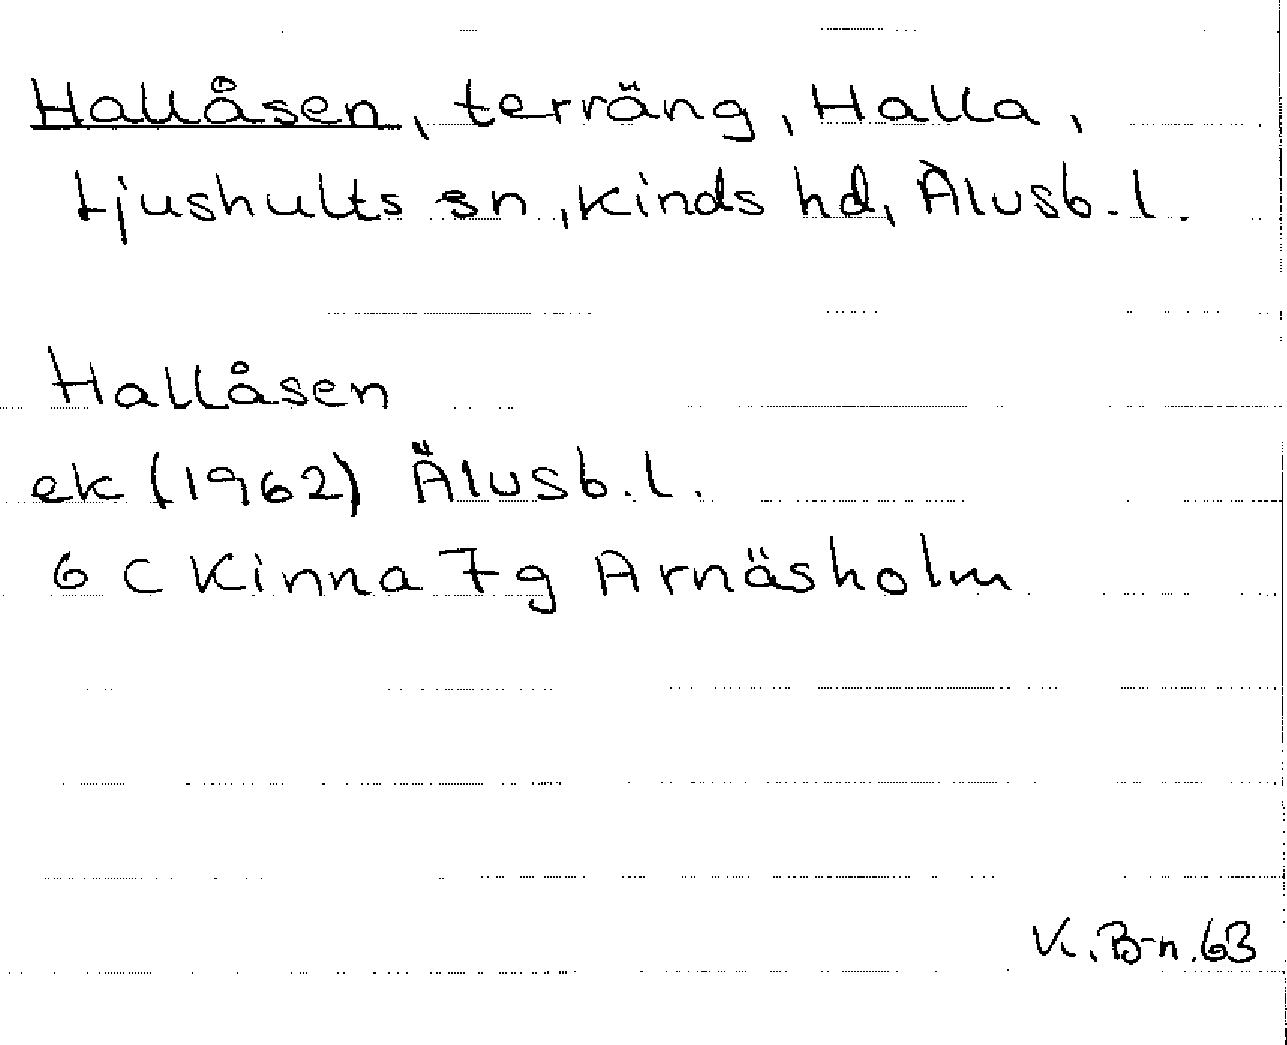 Hallåsen, terräng, Halla,
Ljushults sn, Kinds hd, Älvsb. l.
Hallåsen
ek (1962) Älvsb. l.
6 C Kinna 7 g Arnäsholm
K. B-n. 63